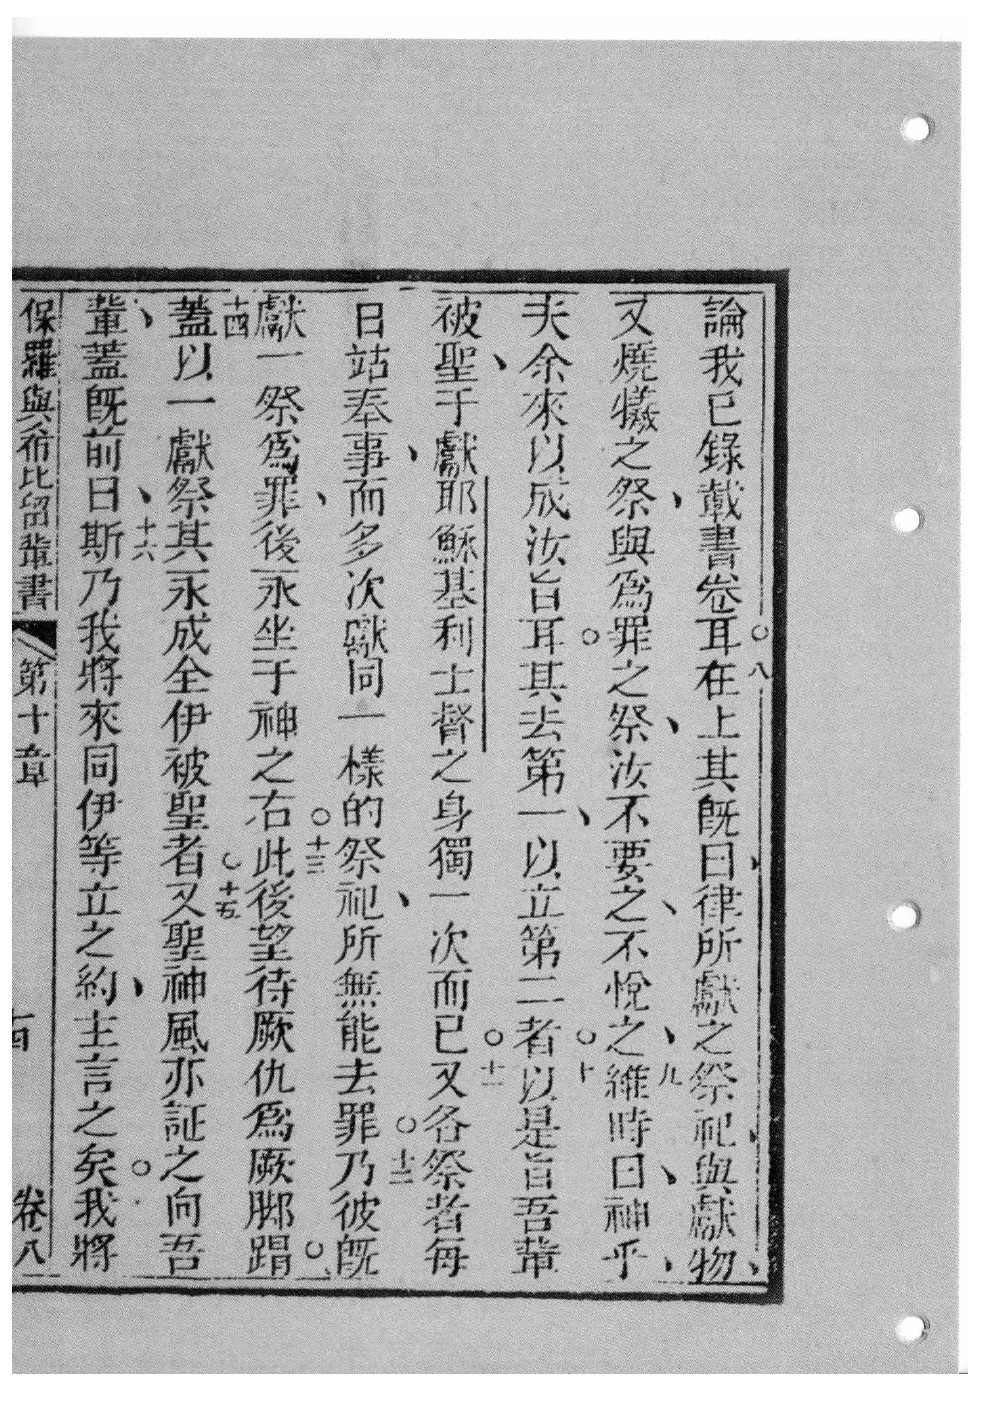 論我已錄載書卷耳○八在上其旣曰、律所獻之祭祀、與獻物、
又燒犧之祭、與爲罪之祭、汝不要之、不悅之、○九維時曰、神乎、
夫余來以成汝旨耳○其去第一、以立第二者○十以是旨吾輩
被聖、于獻耶穌基利士督之身獨一次而已○十一又各祭者每
日站奉事、而多次獻同一樣的祭祀、所無能去罪○十二乃彼旣
獻一祭爲罪、後永坐于神之右○十三此後望待厥仇爲厥脚踻○
十四蓋以一獻祭其永成全伊被聖者○十五又聖神風亦証之向吾
輩、蓋旣前曰、十六斯乃我將來同伊等立之約、主言之矣○我將
保羅與希比留輩書 第十章 卷八